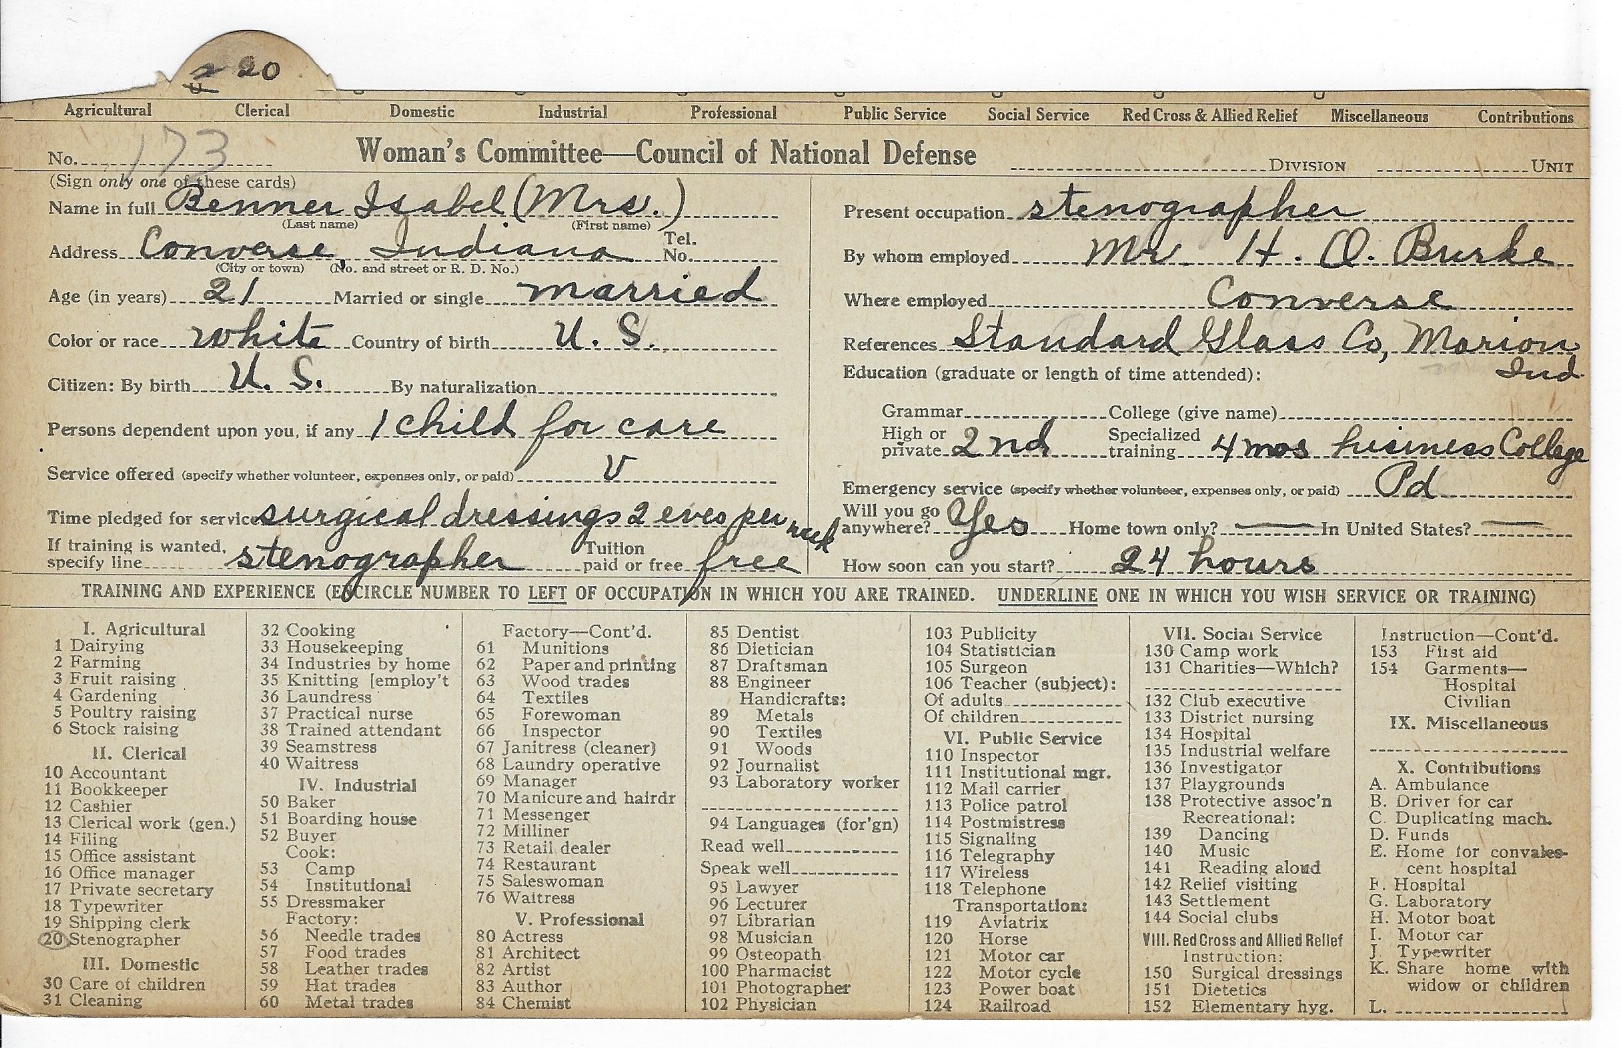 20
Agricultural Clerical Domestic Industrial Professional Public Service Social Service Red Cross & Allied Relief Miscellaneous Contributions
No. 173 Woman's Committee—Council of National Defense DIVISION UNIT
(Sign only one of these cards)
Name in full Benner Isabel (Mrs.)
(Last name) (First name)
Address Converse, Indiana Tel. No.
(City or town) (No. and street or R. D. No.)
Age (in years) 21 Married or single married
Color or race white Country of birth U. S.
Citizen: By birth U. S. By naturalization
Persons dependent upon you, if any 1 child for care
Service offered (specify whether volunteer, expenses only, or paid) V
Time pledged for service surgical dressings 2 eves per week
If training is wanted, specify line stenographer Tuition paid or free free
Present occupation stenographer
By whom employed Mr H. O. Burke
Where employed Converse
References Standard Glass Co, Marion
Ind
Education (graduate or length of time attended):
Grammar College (give name)
High or private 2nd Specialized training 4 mos business College
Emergency service (specify whether volunteer, expenses only, or paid) Pd
Will you go anywhere? Yes Home town only? In United States?
How soon can you start? 24 hours
TRAINING AND EXPERIENCE (ENCIRCLE NUMBER TO LEFT OF OCCUPATION IN WHICH YOU ARE TRAINED. UNDERLINE ONE IN WHICH YOU WISH SERVICE OR TRAINING)
I. Agricultural
1 Dairying
2 Farming
3 Fruit raising
4 Gardening
5 Poultry raising
6 Stock raising
II. Clerical
10 Accountant
11 Bookkeeper
12 Cashier
13 Clerical work (gen.)
14 Filing
15 Office assistant
16 Office manager
17 Private secretary
18 Typewriter
19 Shipping clerk
20 Stenographer
III. Domestic
30 Care of children
31 Cleaning
32 Cooking
33 Housekeeping
34 Industries by home
35 Knitting [employ't
36 Laundress
37 Practical nurse
38 Trained attendant
39 Seamstress
40 Waitress
IV. Industrial
50 Baker
51 Boarding house
52 Buyer
Cook:
53 Camp
54 Institutional
55 Dressmaker
Factory:
56 Needle trades
57 Food trades
58 Leather trades
59 Hat trades
60 Metal trades
Factory—Cont'd.
61 Munitions
62 Paper and printing
63 Wood trades
64 Textiles
65 Forewoman
66 Inspector
67 Janitress (cleaner)
68 Laundry operative
69 Manager
70 Manicure and hairdr
71 Messenger
72 Milliner
73 Retail dealer
74 Restaurant
75 Saleswoman
76 Waitress
V. Professional
80 Actress
81 Architect
82 Artist
83 Author
84 Chemist
85 Dentist
86 Dietician
87 Draftsman
88 Engineer
Handicrafts:
89 Metals
90 Textiles
91 Woods
92 Journalist
93 Laboratory worker
94 Languages (for'gn)
Read well
Speak well
95 Lawyer
96 Lecturer
97 Librarian
98 Musician
99 Osteopath
100 Pharmacist
101 Photographer
102 Physician
103 Publicity
104 Statistician
105 Surgeon
106 Teacher (subject):
Of adults
Of children
VI. Public Service
110 Inspector
111 Institutional mgr.
112 Mail carrier
113 Police patrol
114 Postmistress
115 Signaling
116 Telegraphy
117 Wireless
118 Telephone
Transportation:
119 Aviatrix
120 Horse
121 Motor car
122 Motor cycle
123 Power boat
124 Railroad
VII. Social Service
130 Camp work
131 Charities—Which?
132 Club executive
133 District nursing
134 Hospital
135 Industrial welfare
136 Investigator
137 Playgrounds
138 Protective assoc'n
Recreational:
139 Dancing
140 Music
141 Reading aloud
142 Relief visiting
143 Settlement
144 Social clubs
VIII. Red Cross and Allied Relief
Instruction:
150 Surgical dressings
151 Dietetics
152 Elementary hyg.
Instruction—Cont'd.
153 First aid
154 Garments—
Hospital
Civilian
IX. Miscellaneous
X. Contributions
A. Ambulance
B. Driver for car
C. Duplicating mach.
D. Funds
E. Home for convales-
cent hospital
F. Hospital
G. Laboratory
H. Motor boat
I. Motor car
J. Typewriter
K. Share home with
widow or children
L.